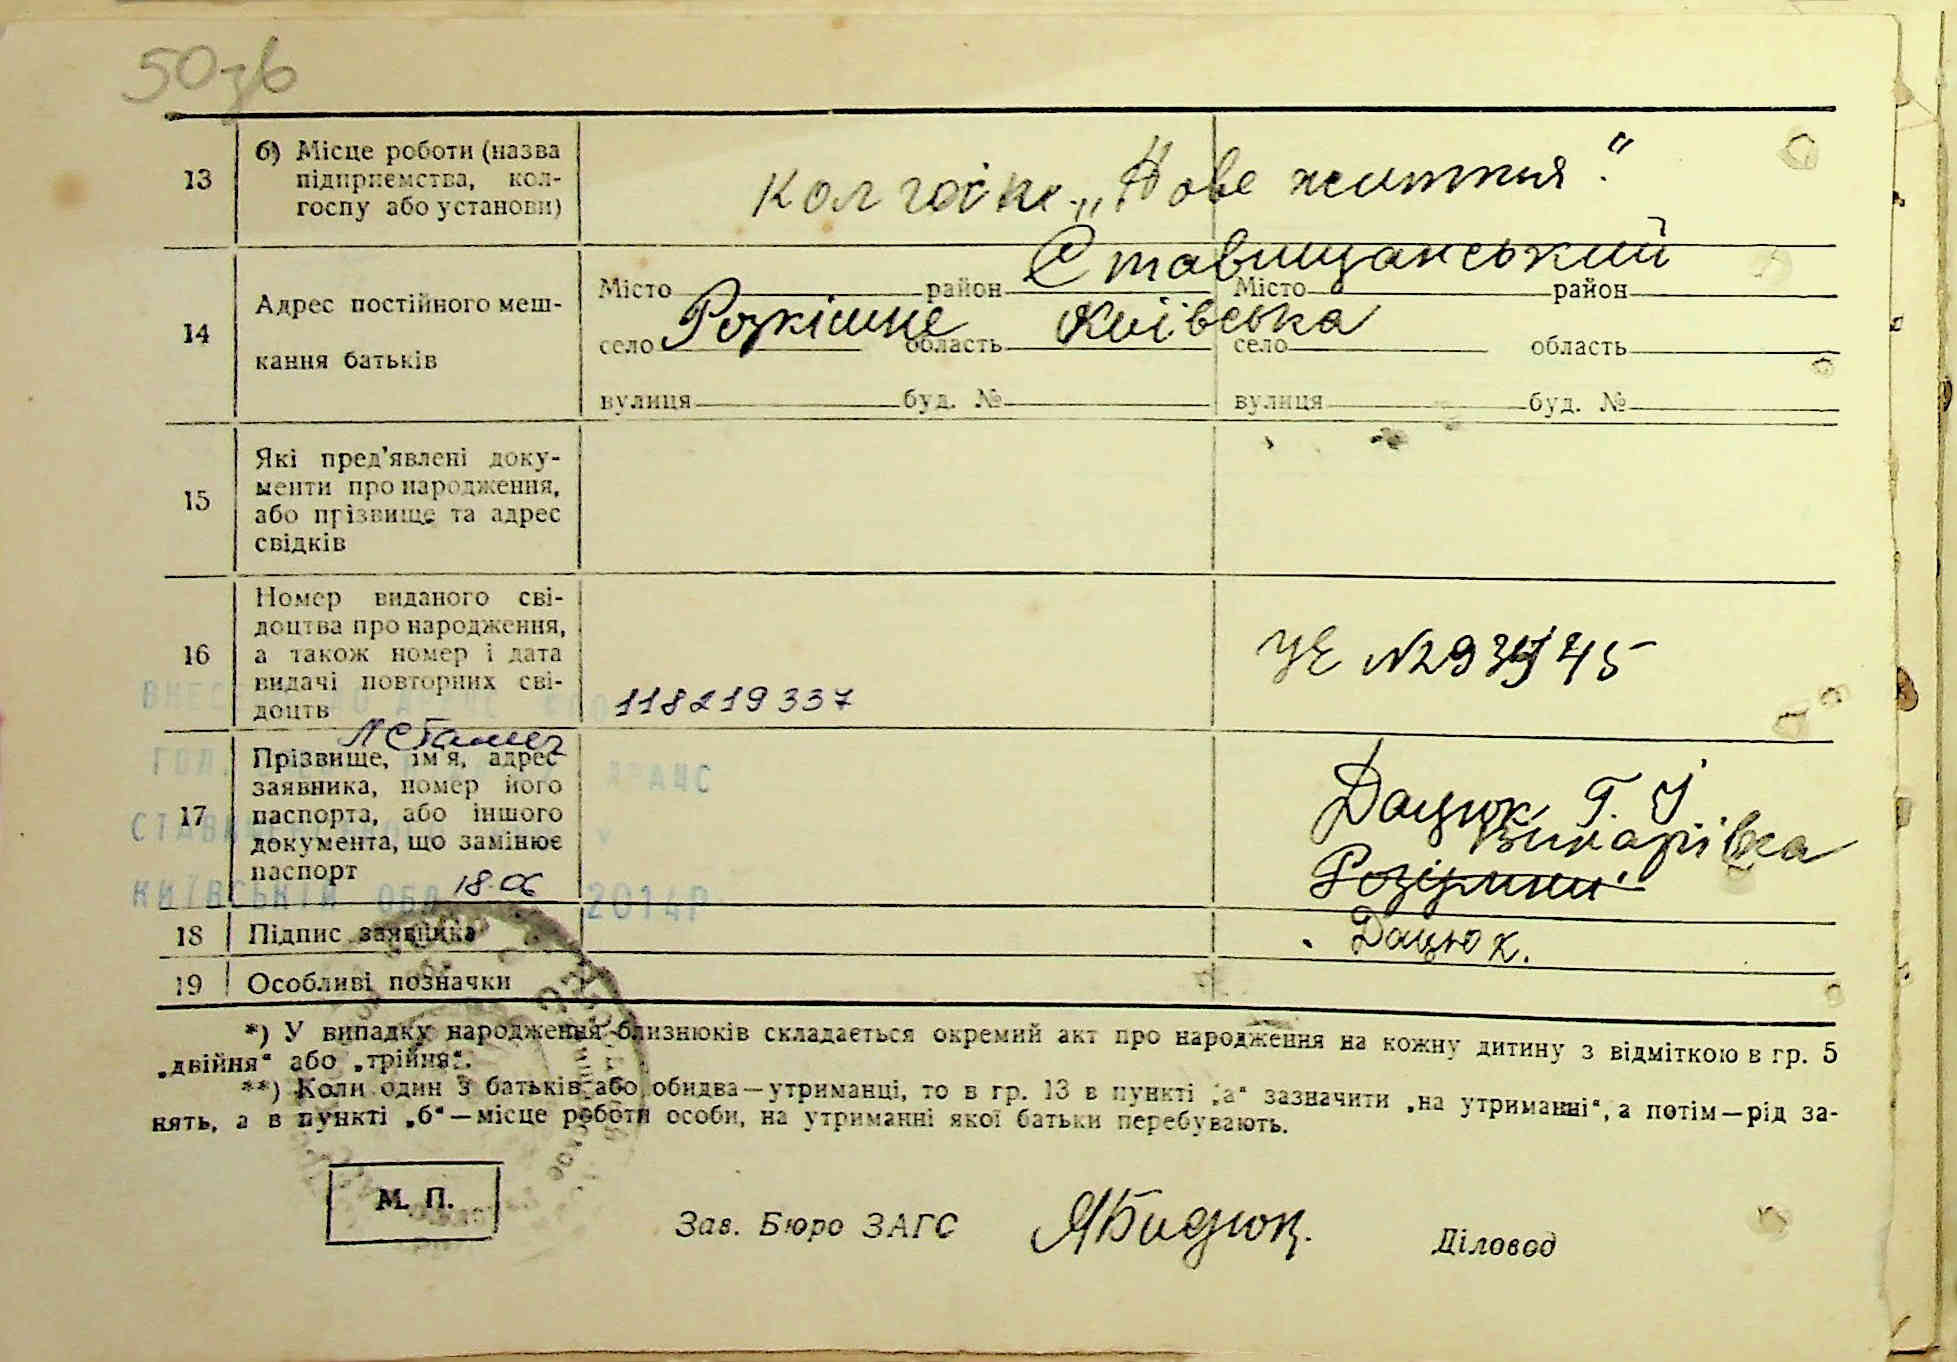 50зв
13 б) Місце роботи (назва
підприємства, кол-
госпу або установи)
колгосп „Нове життя".
14 Адрес постійного меш-
кання батьків
Ставищанський
Місто район Місто район
Розкішне Київська
село область село область
вулиця буд. № вулиця буд. №
15 Які пред'явлені доку-
менти про народження,
або прізвище та адрес
свідків
16 Номер виданого сві-
доцтва про народження,
а також номер і дата
видачі повторних сві-
доцтв
118219337
УЕ №
17 Прізвище, ім'я, адрес
заявника, номер його
паспорта, або іншого
документа, що замінює
паспорт
ДРАЦС
КИЇВСЬКІЙ ОБЛ 18.06 2014Р.
Дацюк Г. І
Винарівка
18 Підпис заявника
Дацюк.
19 Особливі позначки
*) У випадку народження близнюків складається окремий акт про народження на кожну дитину з відміткою в гр. 5
„двійня" або „трійня".
**) Коли один з батьків або обидва—утриманці, то в гр. 13 в пункті „а" зазначити „на утриманні", а потім—рід за-
нять, а в пункті „б"—місце роботи особи, на утриманні якої батьки перебувають.
М. П.
Зав. Бюро ЗАГС
Діловод